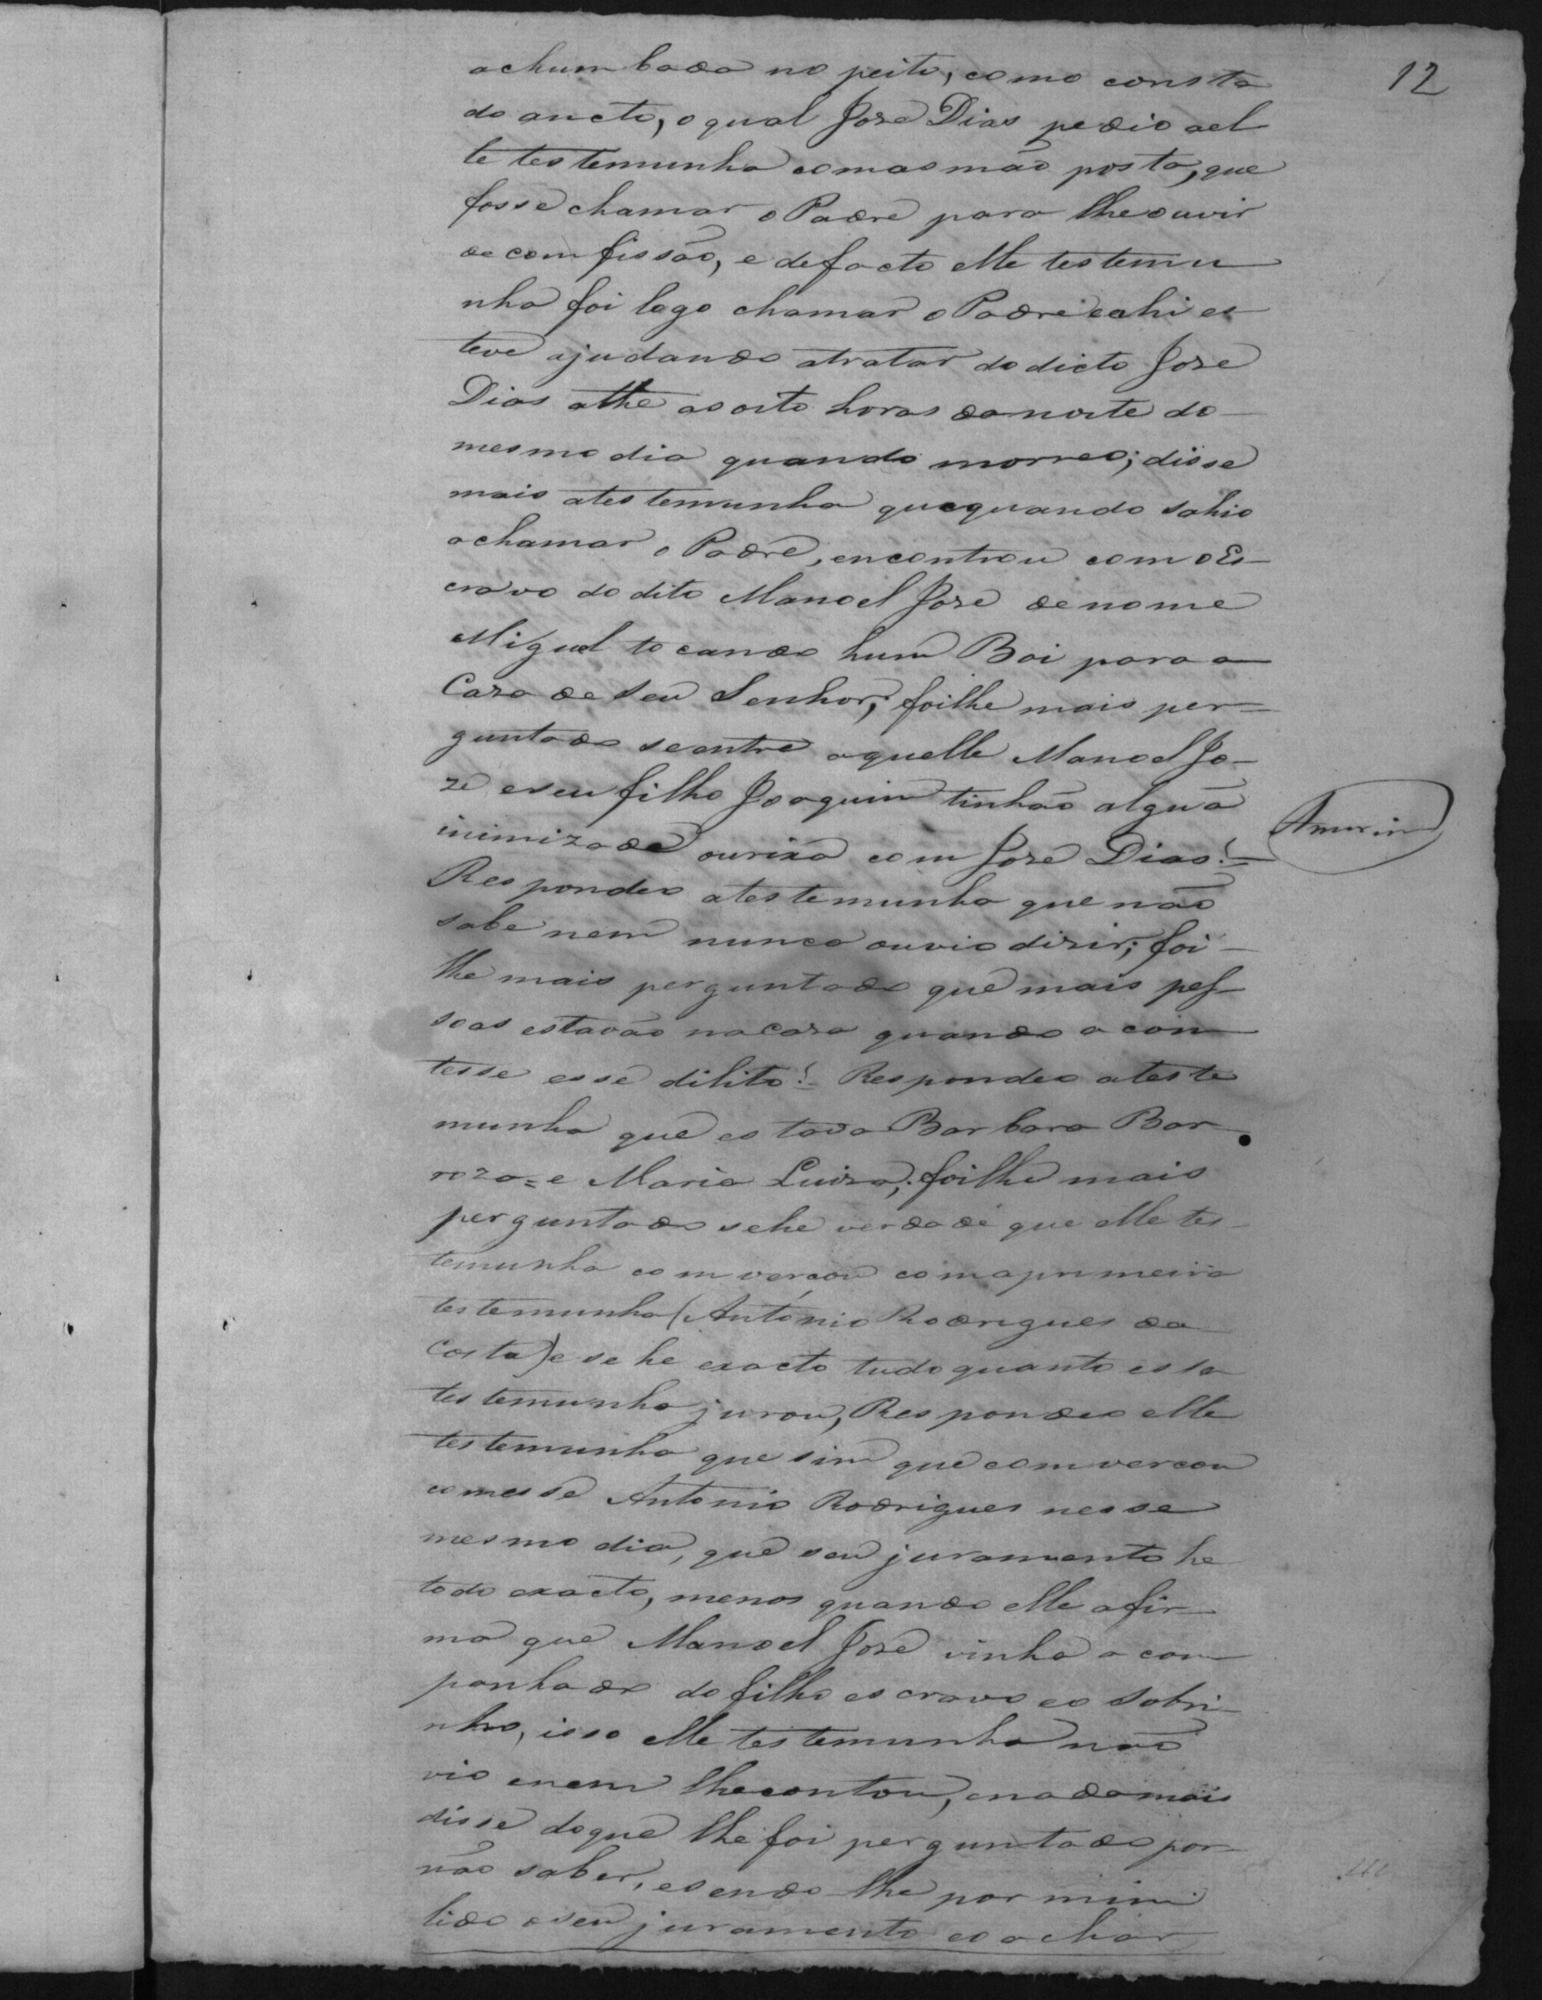 12
achumbada no peito, como consta
do aucto, o qual Joze Dias pedio ael
le testemunha comas mão posta, que
fosse chamar o Padre para lhe ouvir
de comfissão, e defacto elle testemu
nha foi logo chamar o Padre e ahi es
teve ajudando atratar do dicto Joze
Dias athe as oito horas da noite do
mesmo dia quando morreo; disse
mais atestemunha que quando sahio
achamar o Padre, encontrou com o Es-
cravo do dito Manoel Joze de nome
Miguel tocando hum Boi para a
Caza de seu Senhor; foilhe mais per=
guntado se entre aquelle Manoel Jo-
zé e seu filho Joaquim tinhão algũa
inimizade ou rixa com Joze Dias?=
Amorim
Respondeo atestemunha que não
sabe nem nunca ouvio dizir; foi-
lhe mais perguntado que mais pes-
soas estavão na caza quando a con
tesse esse dilito? Respondeo ateste
munha que estava Barbara Bar
roza= e Maria Luiza; foilhe mais
perguntado sehe verdade que elle tes-
temunha comversou com aprimeira
testemunha (António Rodrigues da
Costa) e se he exacto tudo quanto essa
testemunha jurou, Respondeo elle
testemunha que sim que comversou
comesse Antonio Rodrigues nesse
mesmo dia, que seu juramento he
todo exacto, menos quando elle afir-
ma que Manoel Joze vinha acom
panhado do filho escravo eo sobri-
nho, isso elle testemunha não
vio enem lhecontou, enada mais
disse doque lhe foi perguntado por
não saber, esendo lhe por mim
lido oseu juramento eo achar